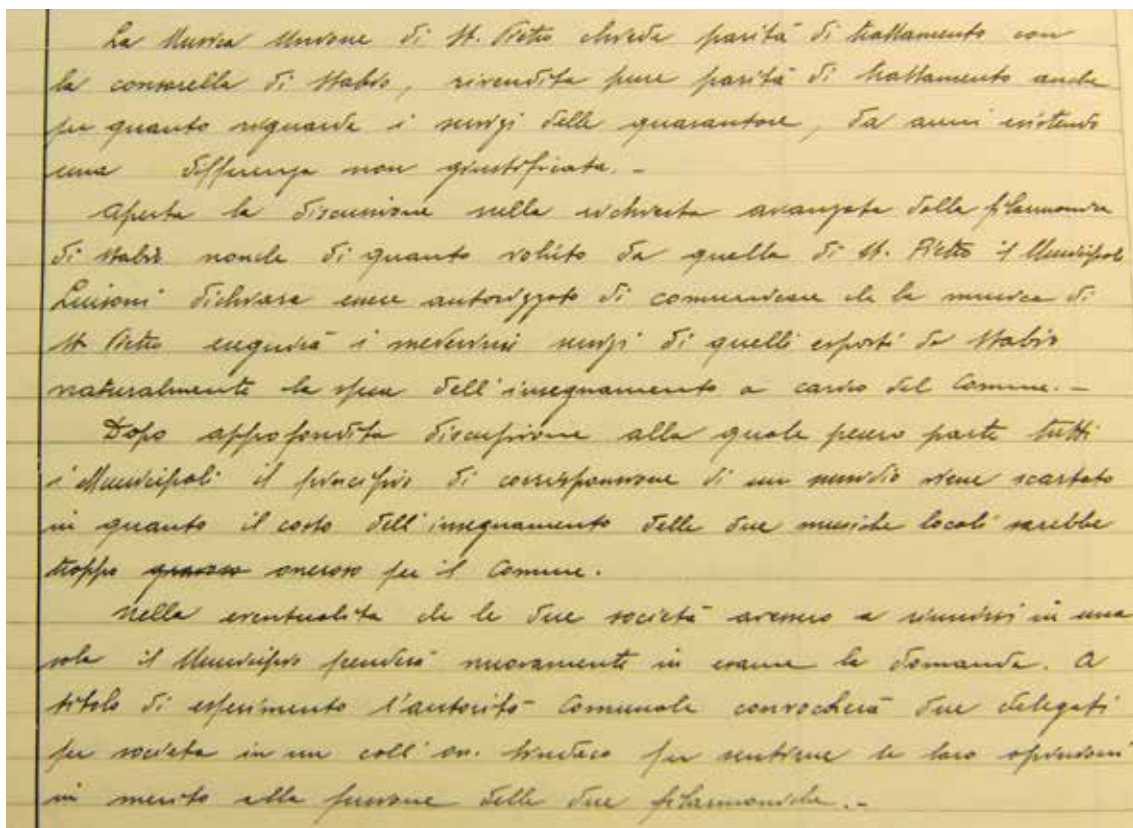 La Musica Unione di St. Pietro chiede parità di trattamento con
la consorella di Stabio, rivendita pure parità di trattamento anche
per quanto riguarda i servizi delle quarantore, da anni esistendo
una differenza non giustificata. -
Aperta la discussione sulla richiesta avanzata dalla filarmonica
di Stabio nonche di quanto voluto da quella di St. Pietro il Municipale
Luisoni dichiara essere autorizzato di comunicare che la musica di
St. Pietro eseguirà i medesimi servizi di quelli esposti da Stabio
naturalmente la spesa dell'insegnamento a carico del Comune. -
Dopo approfondita discussione alla quale preso parte tutti
i Municipali il principio di corresponsione di un sussidio viene scartato
in quanto il costo dell'insegnamento delle due musiche locali sarebbe
troppo oneroso per il Comune.
Nella eventualita che le due società avessero a riunirsi in una
sola il Municipio prenderà nuovamente in esame la domanda. A
titolo di esperimento l'autorità Comunale convocherà due delegati
per societa in un coll' on. Sindaco per sentirne le loro opinioni
in merito alla fusione delle due filarmoniche. -